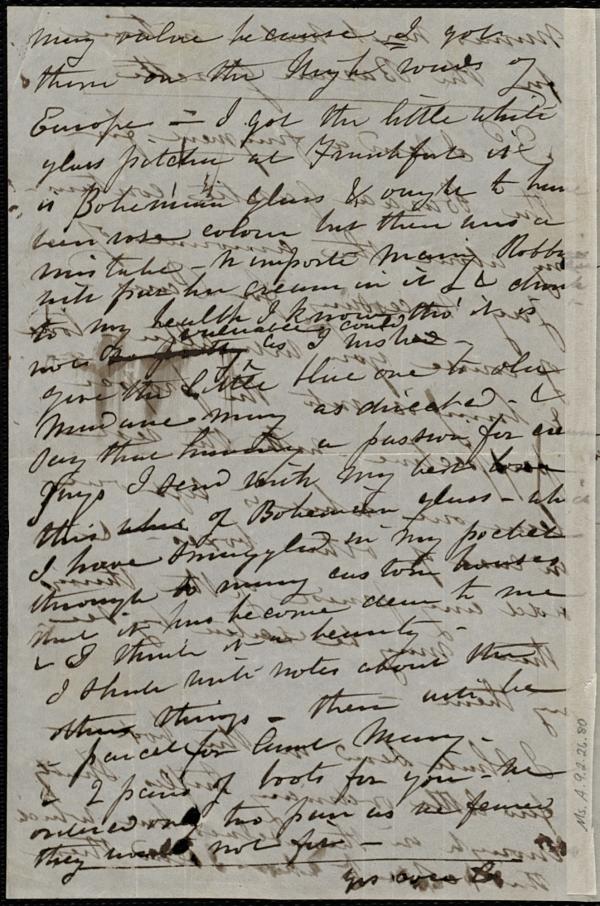 may value because I got
them on the High roads of
Europe – I got the little white
glass pitcher at Frankfort it
is Bohemian glass & ought to have
been rose colour but there was a
mistake – N'importe Mary Robby
will put her cream in it & drink
to my health I know, tho' it is
not valuable as I could wish –
give the little blue one to
Madame May as directed – &
say that having a passion for
jugs I send with my best love
this of Bohemian glass –
I have smuggled in my pocket
through so many custom houses
that it has become dear to me
& I think it a beauty –
I shall write notes about the
other things – there will be
a parcel for Aunt Mary –
& 2 pairs of boots for you – we
ordered only two pair as we feared
they would not fit –
yrs ever
Ms. A. 9. 2. 26. 80